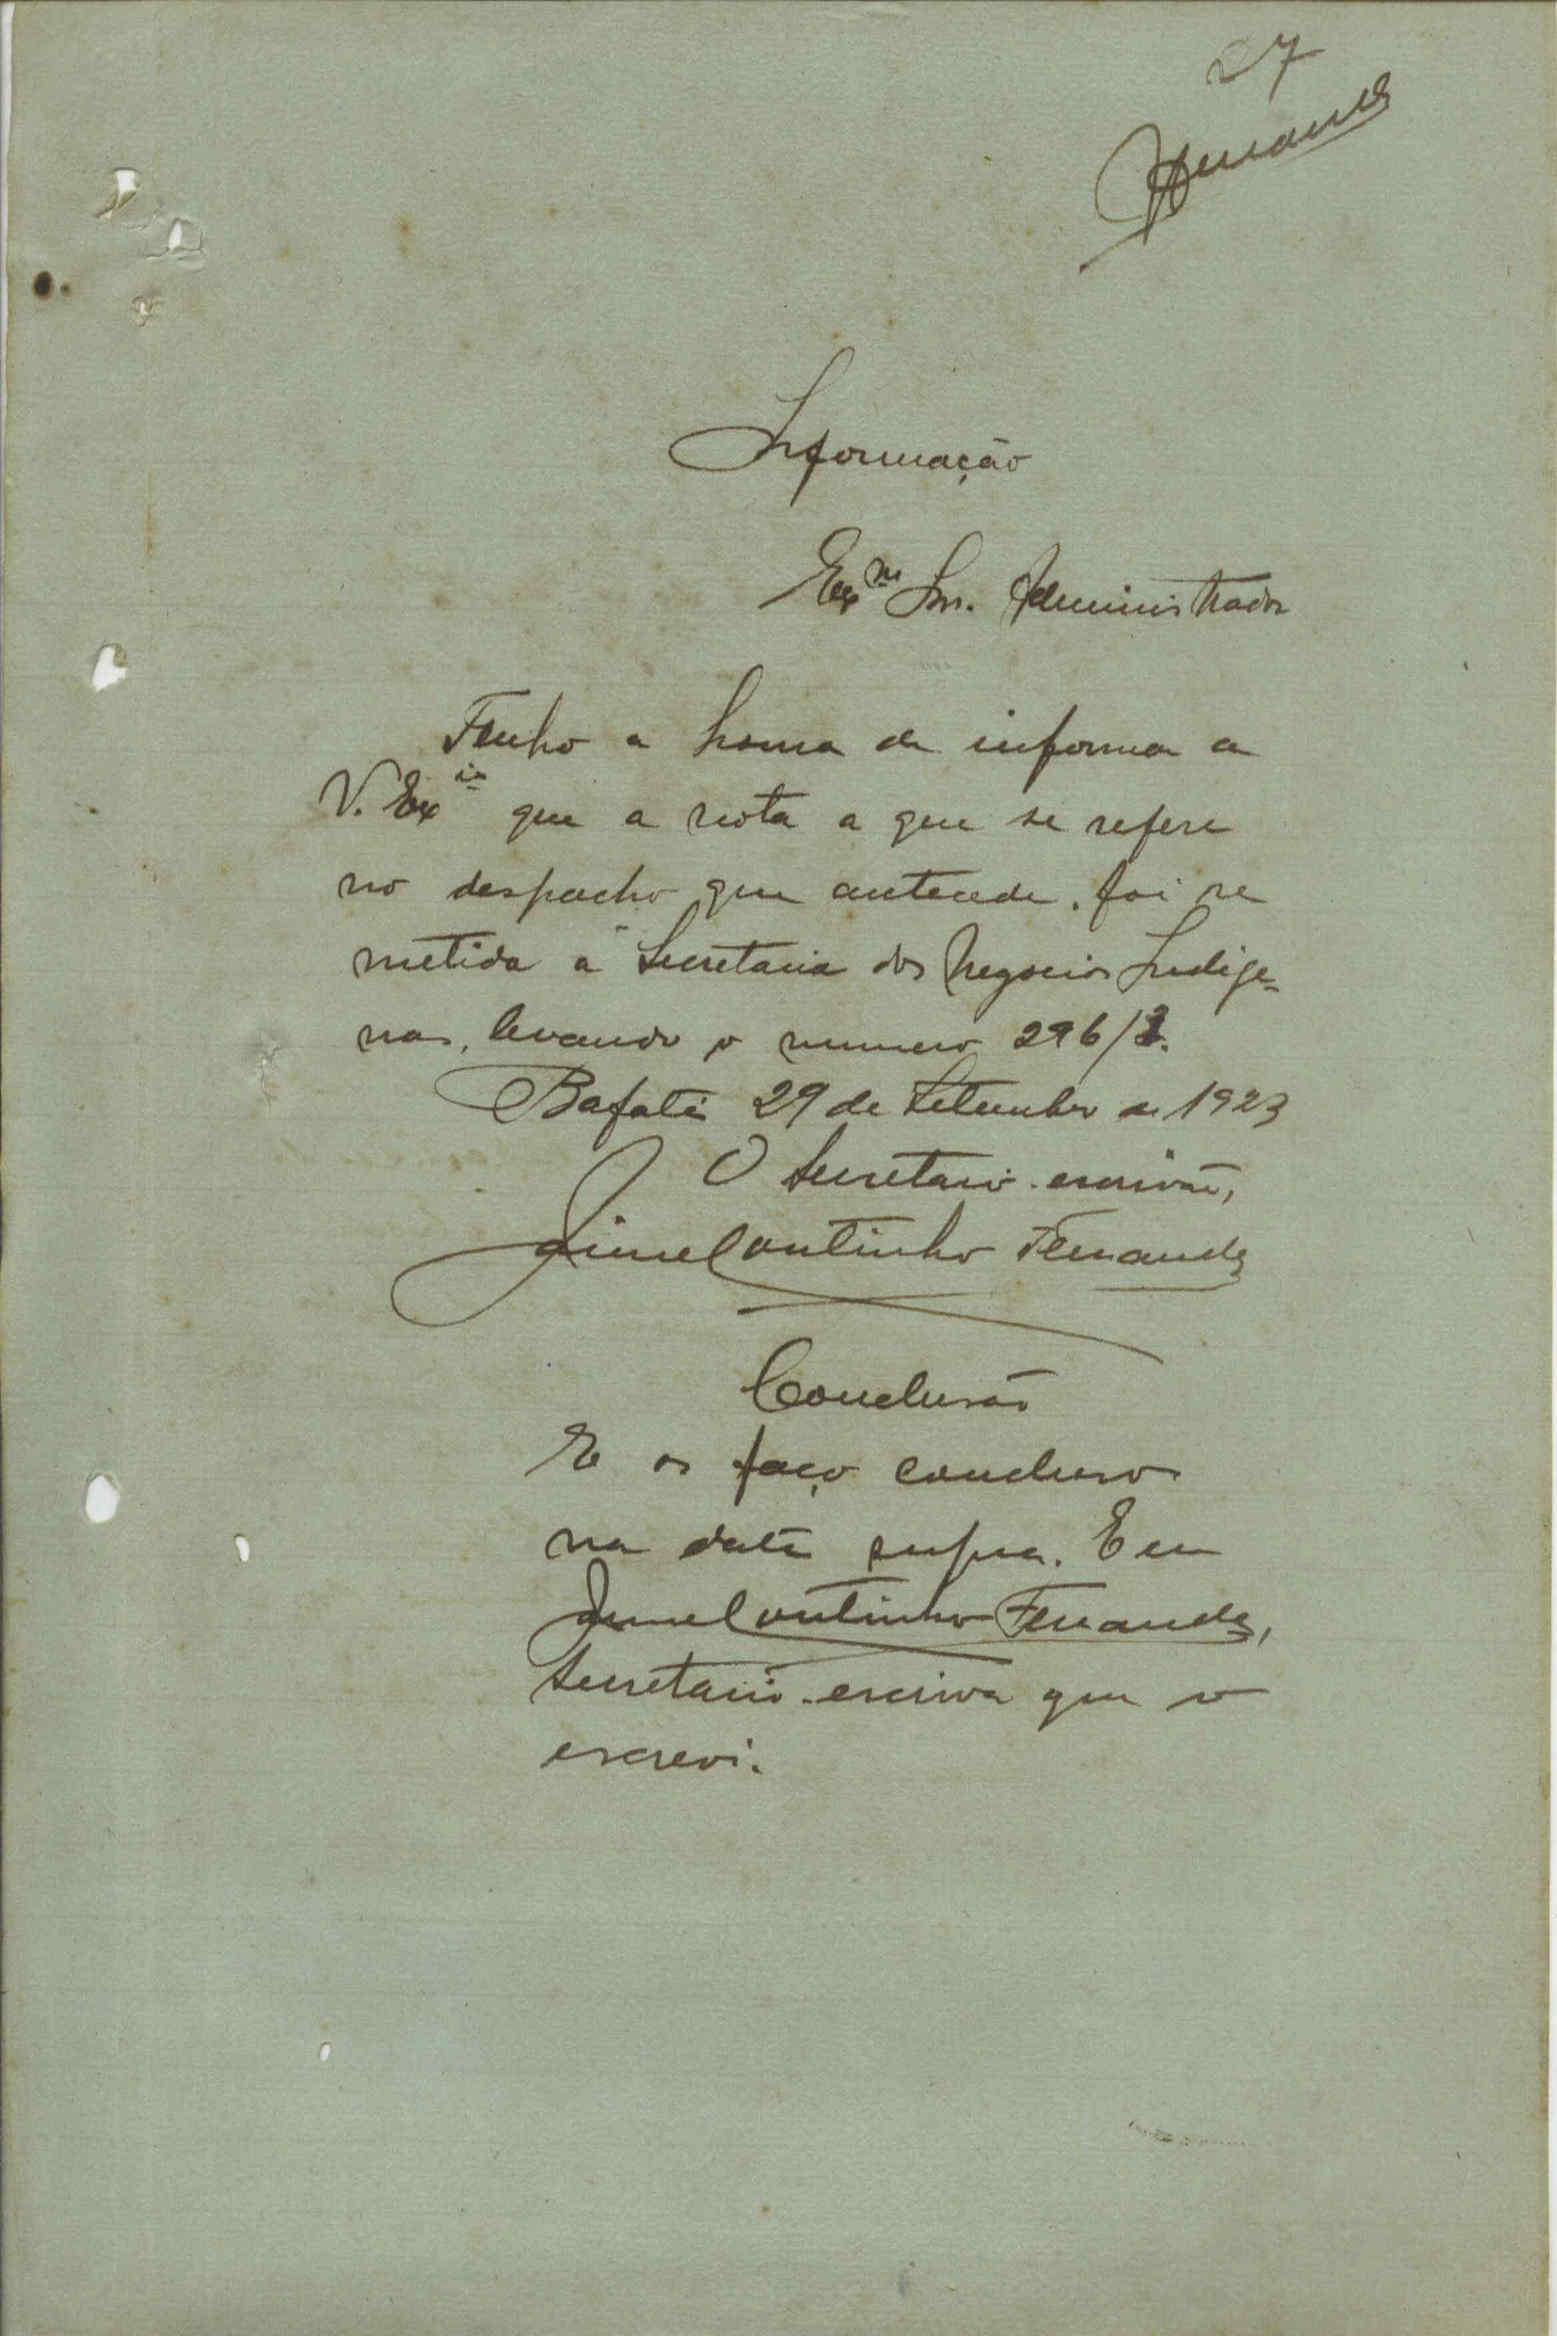 27
Fernandes
Informação
Exmo Snr. Administrador
Tenho a honra de informar a
V. Exia que a nota a que se refere
no despacho que antecede, foi re
metida á Secretaria dos Negocios Indige-
nas, levando o numero 296/3.
Bafatá 29 de Setembro de 1923
O Secretario-escrivão,
Jaime Coutinho Fernandes
Conclusão
E os faço conclusos
na data supra. E eu
Jaime Coutinho Fernandes,
Secretario-escrivão que o
escrevi.